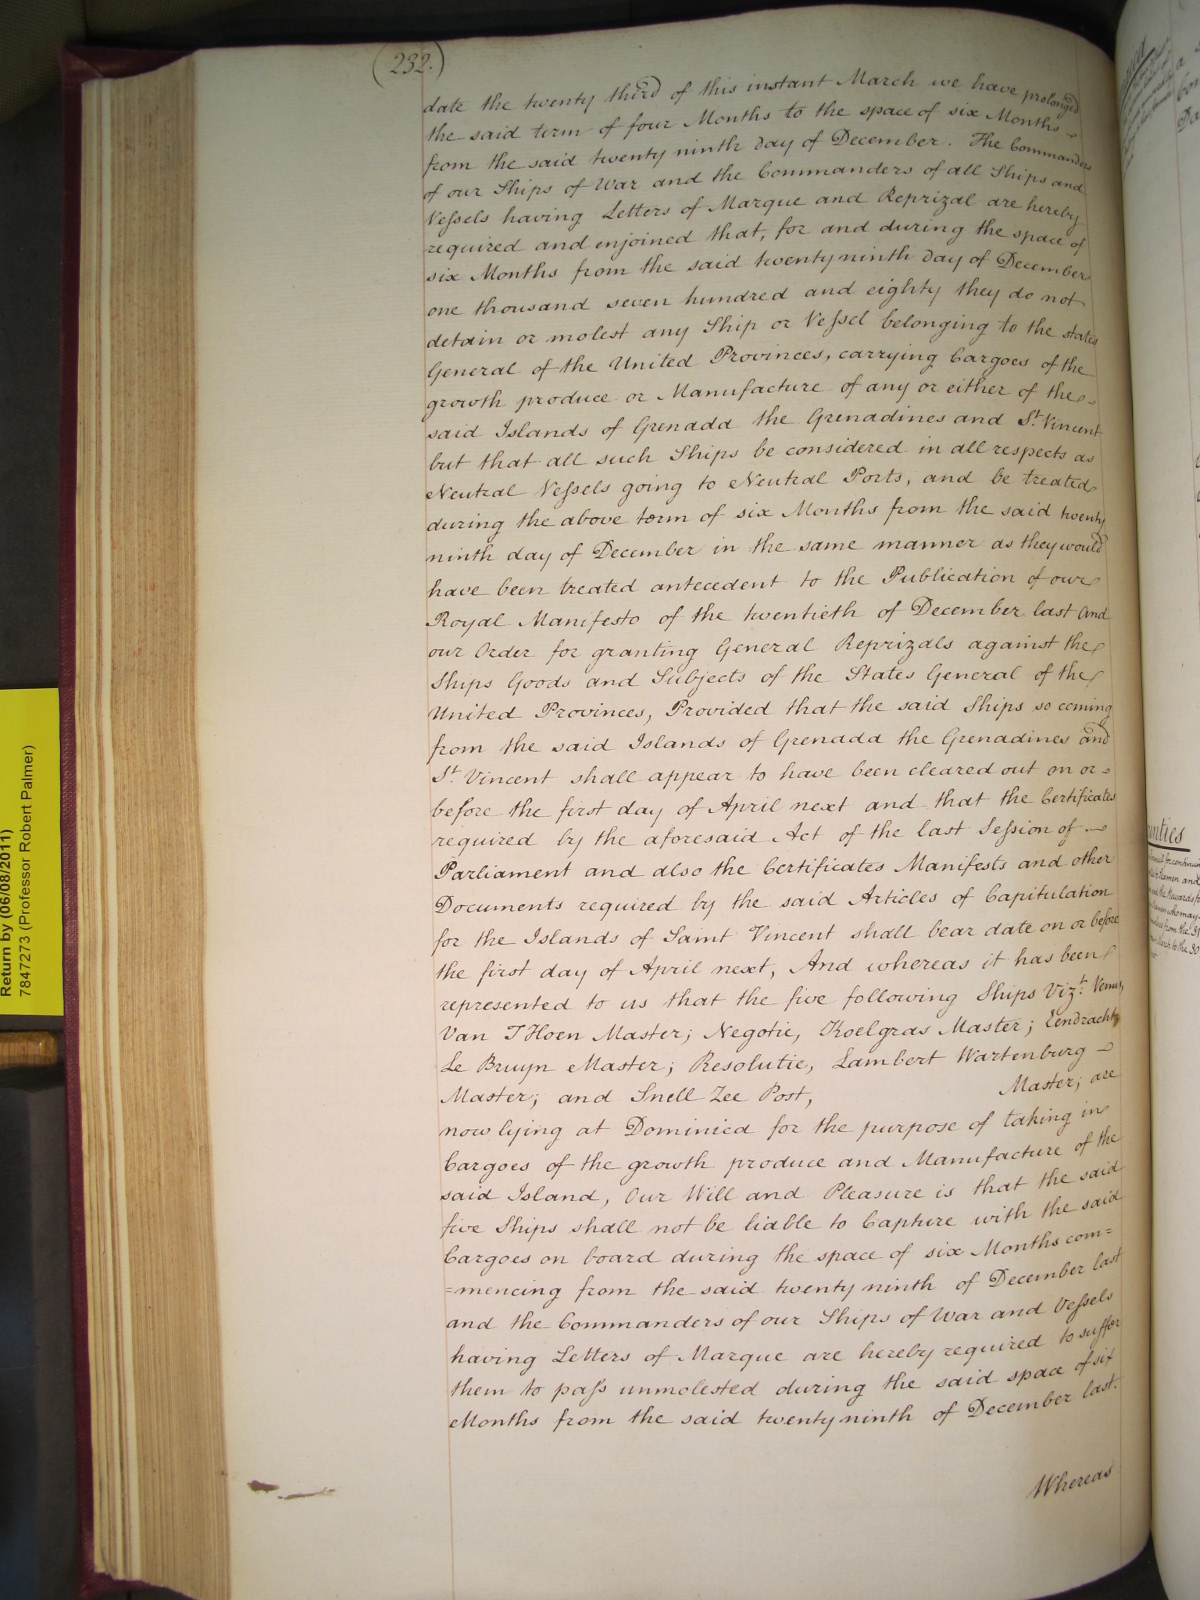 (232.)
date the twenty third of this instant March we have prolonged
the said term of four Months to the space of six Months
from the said twenty ninth day of December. The Commanders
of our Ships of War and the Commanders of all Ships and
Vessels having Letters of Marque and Reprizal are hereby
required and enjoined that, for and during the space of
six Months from the said twenty ninth day of December
one thousand seven hundred and eighty they do not
detain or molest any Ship or Vessel belonging to the states
General of the United Provinces, carrying Cargoes of the
growth produce or Manufacture of any or either of the
said Islands of Grenada the Grenadines and St. Vincent
but that all such Ships be considered in all respects as
Neutral Vessels going to Neutral Ports, and be treated
during the above term of six Months from the said twenty
ninth day of December in the same manner as they would
have been treated antecedent to the Publication of our
Royal Manifesto of the twentieth of December last and
our Order for granting General Reprizals against the
Ships Goods and Subjects of the States General of the
United Provinces, Provided that the said Ships so coming
from the said Islands of Grenada the Grenadines and
St. Vincent shall appear to have been cleared out on or =
before the first day of April next and that the Certificates
required by the aforesaid Act of the last Session of
Parliament and also the Certificates Manifests and other
Documents required by the said Articles of Capitulation
for the Islands of Saint Vincent shall bear date on or before
the first day of April next, And whereas it has been
represented to us that the five following Ships Vizt. Venus,
Van THoen Master; Negotie, Koelgras Master; Eendracht,
Le Bruyn Master; Resolutie, Lambert Wartenburg
Master; and Snell Zee Post, Master; are
now lying at Dominica for the purpose of taking in
Cargoes of the growth produce and Manufacture of the
said Island, Our Will and Pleasure is that the said
five Ships shall not be liable to Capture with the said
Cargoes on board during the space of six Months com=
=mencing from the said twenty ninth of December last
and the Commanders of our Ships of War and Vessels
having Letters of Marque are hereby required to suffer
them to pass unmolested during the said space of six
Months from the said twenty ninth of December last.
Whereas
Return by (06/08/2011)
7847273 (Professor Robert Palmer)